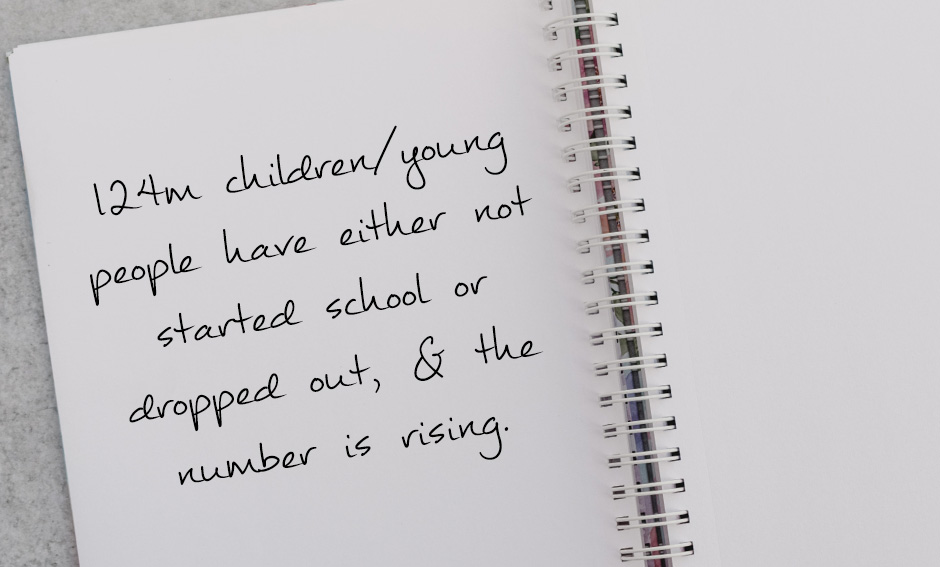 124m children/young
people have either not
started school or
dropped out, & the
number is rising.